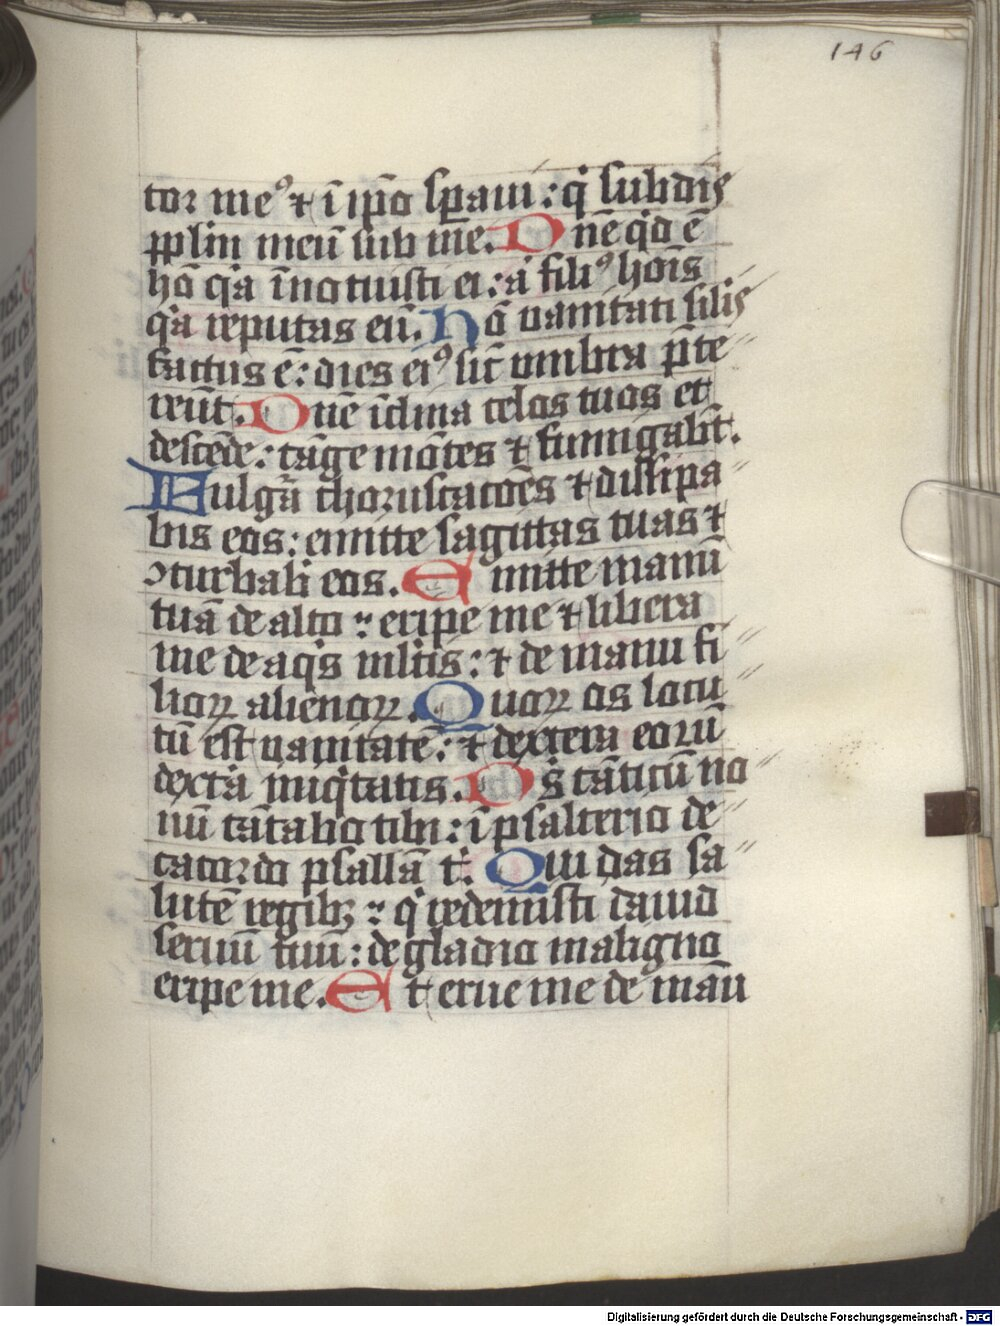 146
tor me⁹ ⁊ ī ip̄o sꝑaui : q̇ subdis
pp̄lm meū sub me. D nē qͥd ē
hō qͥa īnotuisti ei : aͭ filiꝰ hoīs
qͥa reputas eū. Hō vanitati silis
factus ē : dies eiꝰ sic̄ vmbra p̄te
reūt. Dne īclina celos tuos et
descēde : tāge mōtes ⁊ fumigabūt.
Fulgᷓa choruscacōes ⁊ dissipa
bis eos : emitte sagittas tuas ⁊
ꝯturbab eos. E mitte manū
tuā de alto : eripe me ⁊ libera
me de aqͥs mltis : ⁊ de manu fi
lioꝝ alienoꝝ. Quoꝝ os locu
tū est vanitatē : ⁊ dextera eorū
dextᷓa iniqͥtatis. Ds cāticū no
uū cātabo tibi : ī psalterio de
cacordo psallā t̄. Qui das sa
lutē regibꝫ : q̇ redemisti dauid
seruū tuū : de gladio maligno
eripe me. Et erue me de manū
Digitalisierung gefördert durch die Deutsche Forschungsgemeinschaft - DFG